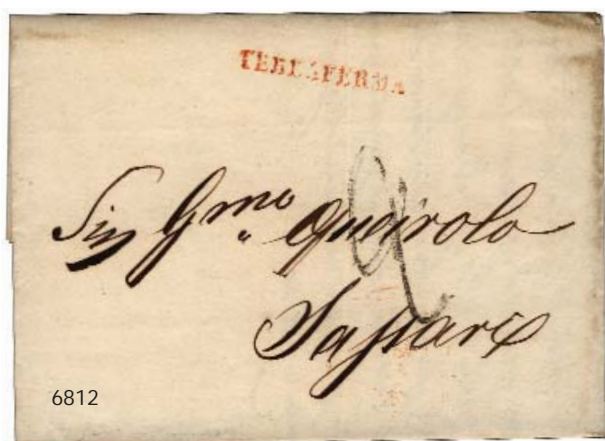 TERRAFERMA
Sig Gmo Queirolo
Sassari
6812